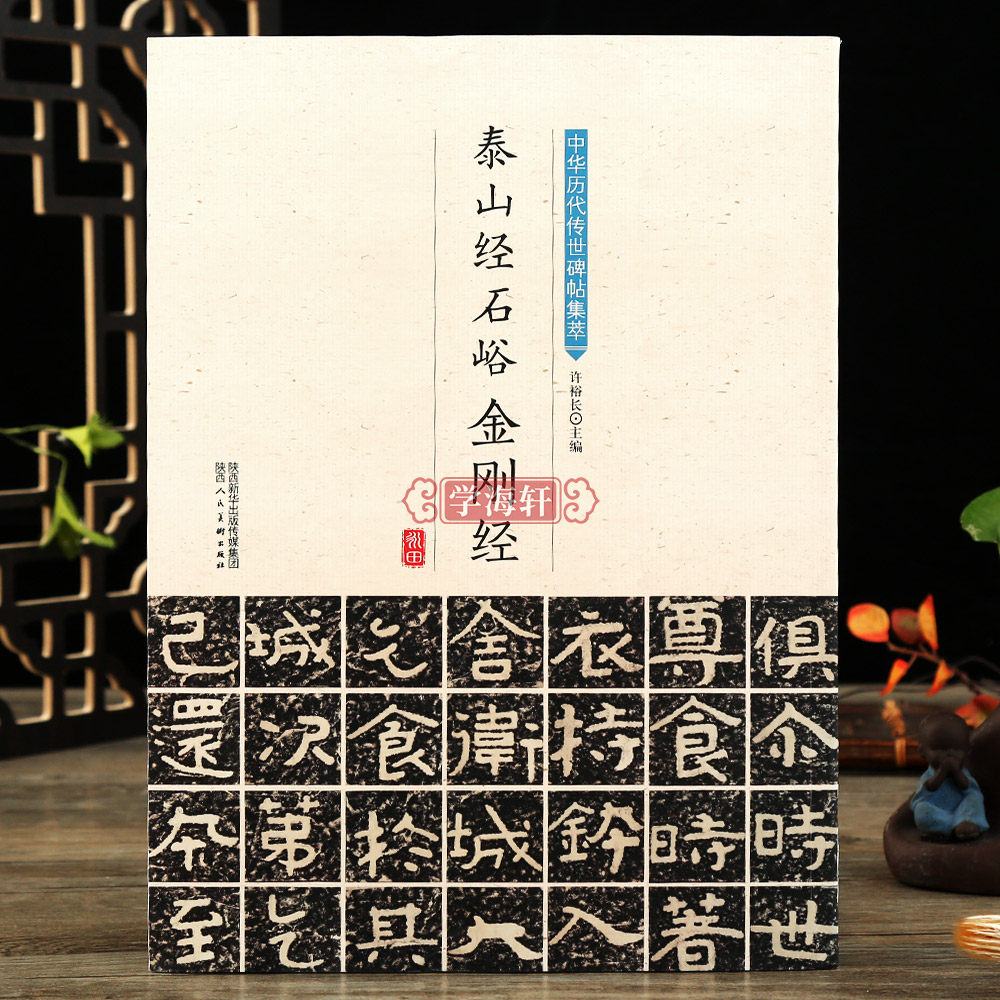 中华历代传世碑帖集萃
许裕长⊙主编
泰山经石峪金刚经
学海轩
陕西新华出版传媒集团
陕西人民美术出版社
俱尒時世
尊食時著
衣持鉢入
舍衛城大
乞食於其
城次第乞
已還本至